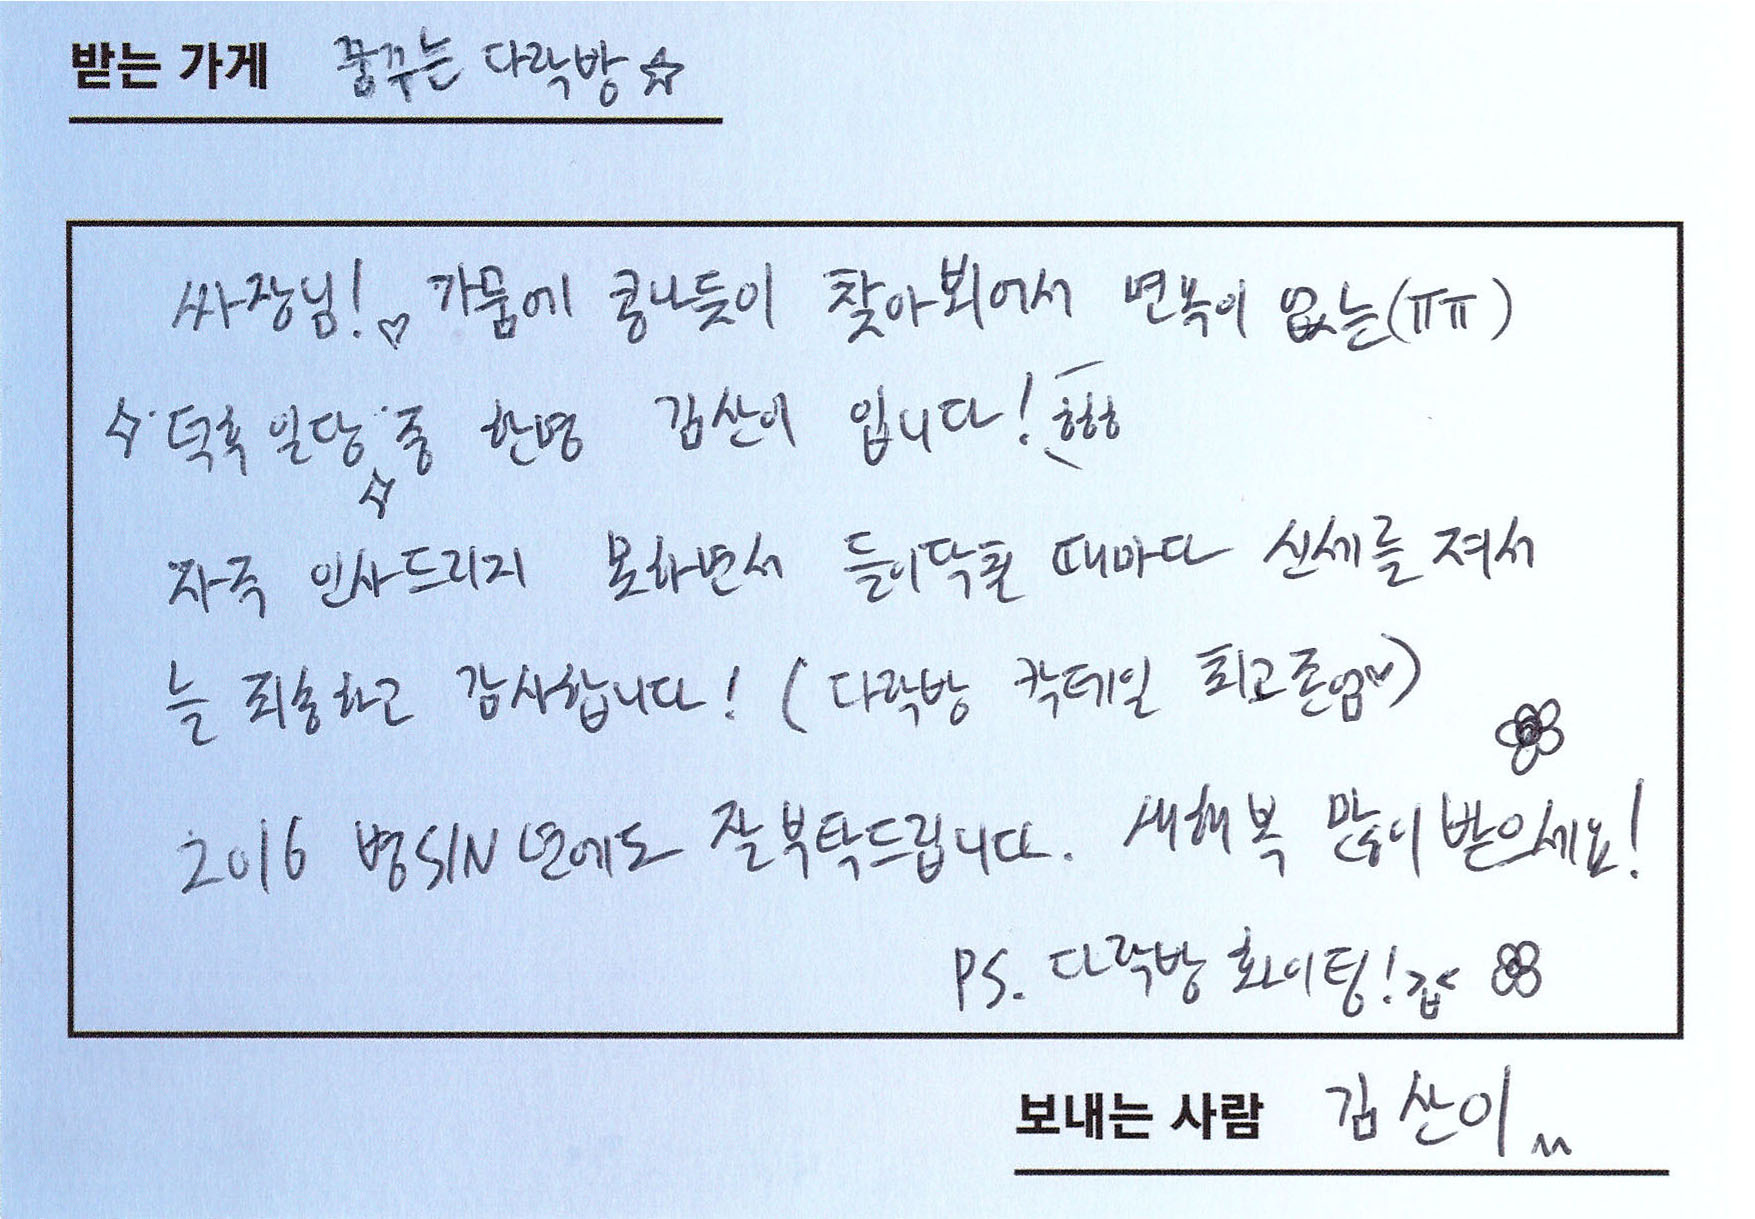 받는 가게 꿈꾸는 다락방☆
싸장님!♡ 가뭄에 콩나듯이 찾아뵈어서 면목이 없는(ㅠㅠ)
"덕후 일당" 중 한명 김산이 입니다! ㅎㅎㅎ
자주 인사드리지 못하면서 들이닥칠 때마다 신세를 져서
늘 죄송하고 감사합니다! (다락방 칵테일 최고존엄♥)
2016 병SIN년에도 잘 부탁드립니다. 새해 복 많이 받으세요!
PS. 다락방 화이팅!
보내는 사람 김산이